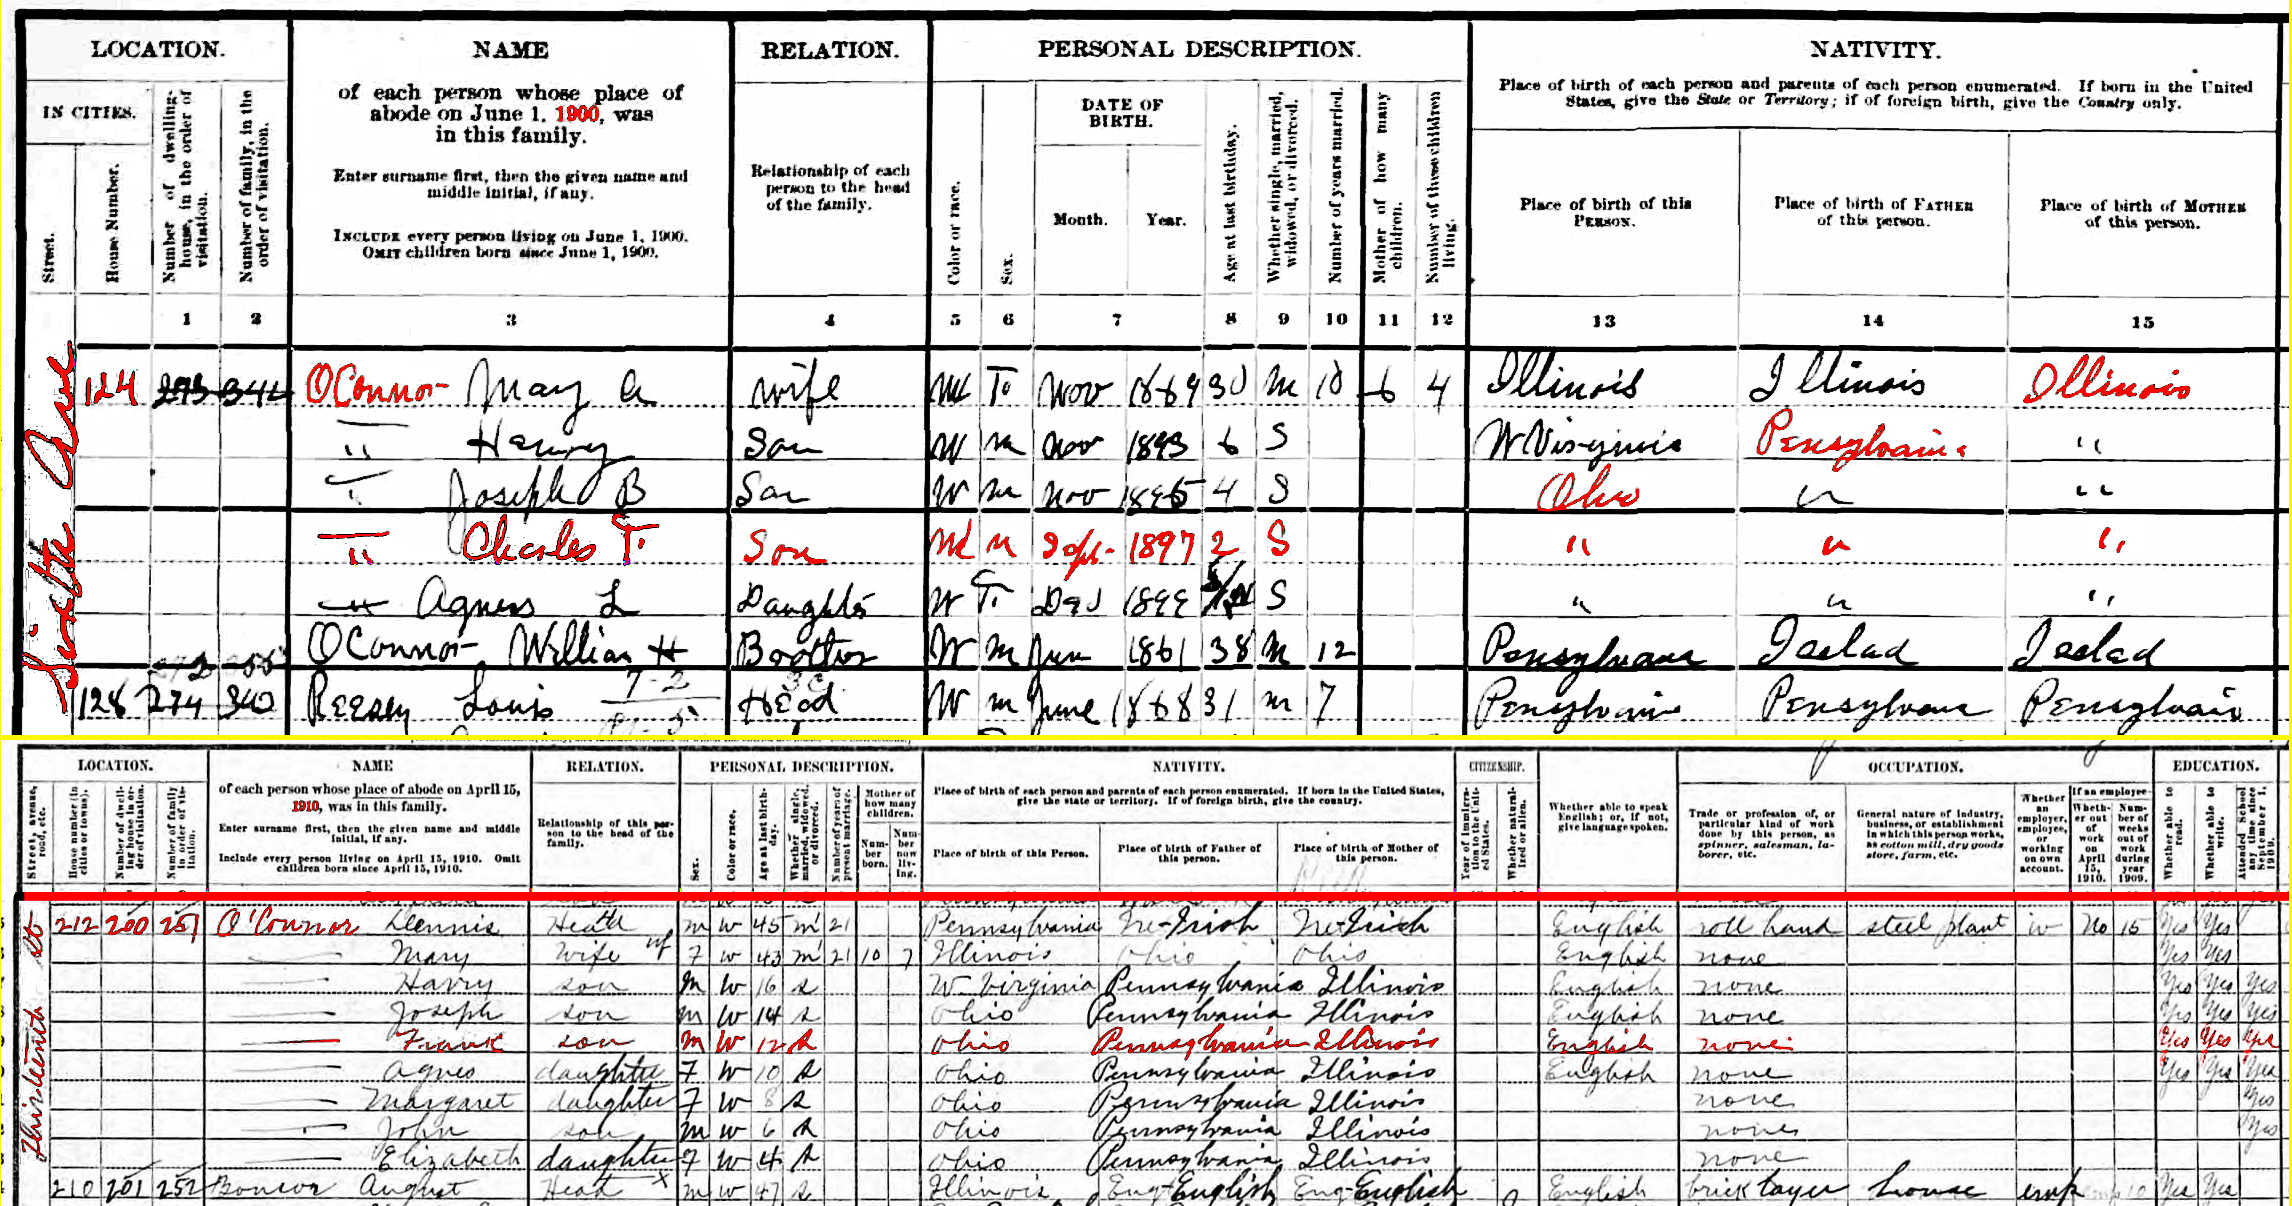 LOCATION. NAME RELATION. PERSONAL DESCRIPTION. NATIVITY.
IN CITIES.
Street.
House Number.
Number of dwelling-house, in the order of visitation.
Number of family, in the order of visitation.
of each person whose place of
abode on June 1, 1900, was
in this family.
Enter surname first, then the given name and
middle initial, if any.
INCLUDE every person living on June 1, 1900.
OMIT children born since June 1, 1900.
Relationship of each
person to the head
of the family.
Color or race.
Sex.
DATE OF
BIRTH.
Month. Year.
Age at last birthday.
Whether single, married, widowed, or divorced.
Number of years married.
Mother of how many children.
Number of these children living.
Place of birth of each person and parents of each person enumerated. If born in the United
States, give the State or Territory; if of foreign birth, give the Country only.
Place of birth of this
PERSON.
Place of birth of FATHER
of this person.
Place of birth of MOTHER
of this person.
1 2 3 4 5 6 7 8 9 10 11 12 13 14 15
Sixth Ave
124 293 344 OConnor Mary A wife W F Nov 1869 30 M 10 6 4 Illinois Illinois Illinois
" Henry Son W M Nov 1893 6 S W Virginia Pensylvania "
" Joseph B Son W M Nov 1895 4 S Ohio " "
" Charles F. Son W M Sept 1897 2 S " " "
" Agness L Daughter W F Dec 1899 S " " "
OConnor William H Brother W M Jun 1861 38 M 12 Pensylvana
128 274 340 Louis Head W M June 1868 31 M 7 Pensylvania Pensylvana Pensylvain
LOCATION. NAME RELATION. PERSONAL DESCRIPTION. NATIVITY. CITIZENSHIP. OCCUPATION. EDUCATION.
Street, avenue, road, etc.
House number (in cities or towns).
Number of dwelling house in order of visitation.
Number of family in order of visitation.
of each person whose place of abode on April 15,
1910, was in this family.
Enter surname first, then the given name and middle
initial, if any.
Include every person living on April 15, 1910. Omit
children born since April 15, 1910.
Relationship of this per-
son to the head of the
family.
Sex.
Color or race.
Age at last birthday.
Whether single, married, widowed, or divorced.
Number of years of present marriage.
Mother of
how many
children.
Num-
ber
born.
Num-
ber
now
liv-
ing.
Place of birth of each person and parents of each person enumerated. If born in the United States,
give the state or territory. If of foreign birth, give the country.
Place of birth of this Person.
Place of birth of Father of
this person.
Place of birth of Mother of
this person.
Year of immigration to the United States.
Whether naturalized or alien.
Whether able to speak
English; or, if not,
give language spoken.
Trade or profession of, or
particular kind of work
done by this person, as
spinner, salesman, la-
borer, etc.
General nature of industry,
business, or establishment
in which this person works,
as cotton mill, dry goods
store, farm, etc.
Whether
an
employer,
employee,
or
working
on own
account.
If an employee—
Wheth-
er out
of
work
on
April
15,
1910.
Num-
ber of
weeks
out of
work
during
year
1909.
Whether able to read.
Whether able to write.
Attended School any time since September 1, 1909.
Thirteenth St
212 200 251 O'Connor Dennis Head m w 45 m1 21 Pennsylvania Ire-Irish Ire-Irish English roll hand steel plant w No 15 Yes Yes
Mary wife F w 43 m1 21 10 7 Illinois Ohio Ohio English none Yes Yes
Harry son m w 16 s W Virginia Pennsylvania Illinois English none Yes Yes Yes
Joseph son m w 14 s Ohio Pennsylvania Illinois English none Yes Yes Yes
Frank son m w 12 s Ohio Pennsylvania Illinois English none Yes Yes Yes
Agnes daughter F w 10 s Ohio Pennsylvania Illinois English none Yes Yes Yes
Margaret daughter F w 8 s Ohio Pennsylvania Illinois none Yes
John son m w 6 s Ohio Pennsylvania Illinois none Yes
Elizabeth daughter F w 4 s Ohio Pennsylvania Illinois none
210 201 252 August Head m w 47 s Illinois Eng-English Eng-English English brick layer house emp Yes Yes